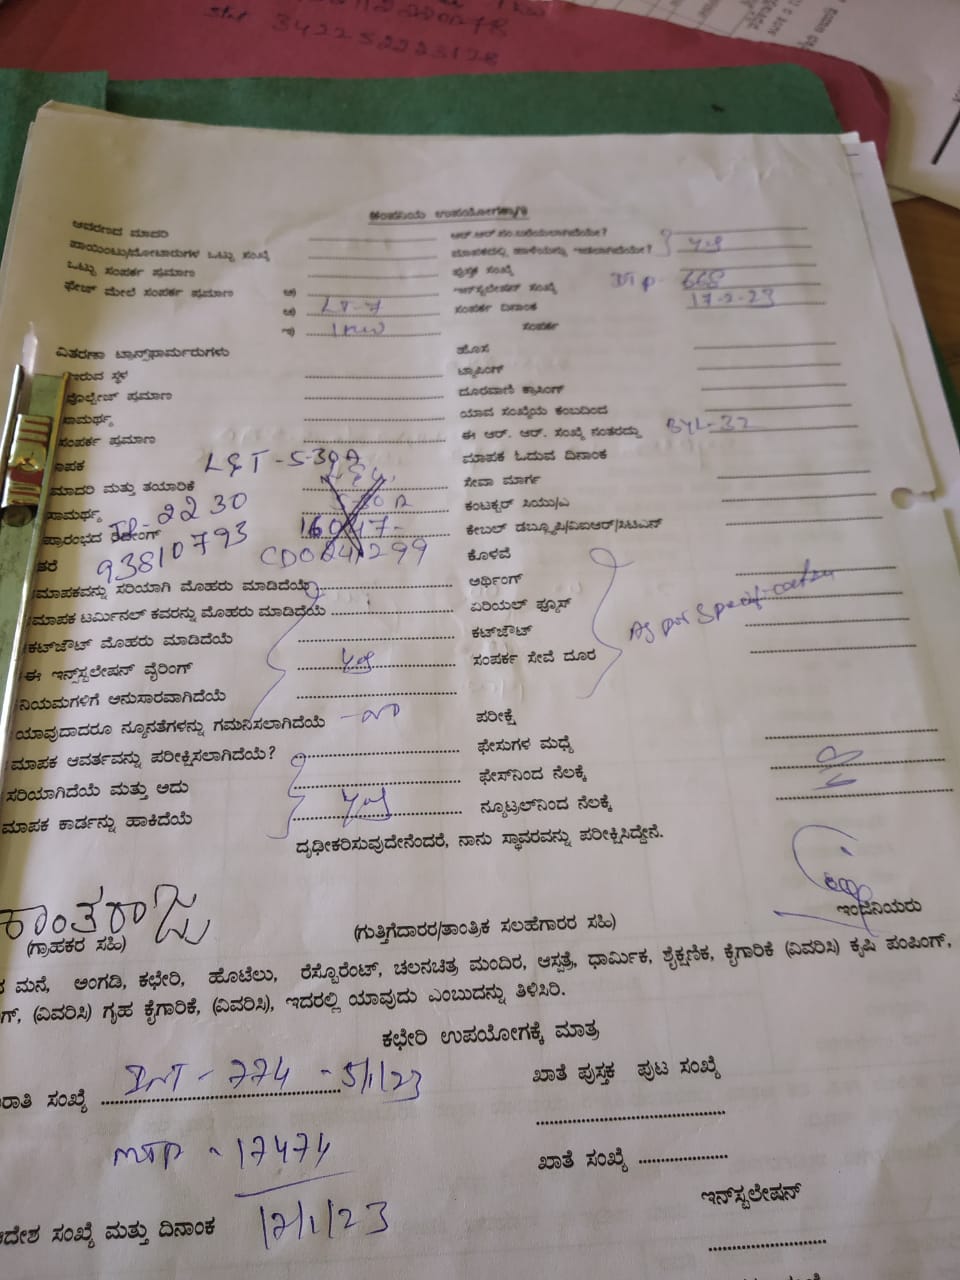 3422522223128
ಕಂಪನಿಯ ಉಪಯೋಗಕ್ಕಾಗಿ
ಆವರಣದ ಮಾದರಿ
ಪಾಯಿಂಟು/ಮೋಟಾರುಗಳ ಒಟ್ಟು ಸಂಖ್ಯೆ
ಒಟ್ಟು ಸಂಪರ್ಕ ಪ್ರಮಾಣ
ಫೇಜ್ ಮೇಲೆ ಸಂಪರ್ಕ ಪ್ರಮಾಣ ಅ)
ಆ) LT-7
ಇ) 1KW
ವಿತರಣಾ ಟ್ರಾನ್ಸ್‌ಫಾರ್ಮರುಗಳು
ಇರುವ ಸ್ಥಳ
ವೋಲ್ಟೇಜ್ ಪ್ರಮಾಣ
ಸಾಮರ್ಥ್ಯ
ಸಂಪರ್ಕ ಪ್ರಮಾಣ
ಮಾಪಕ L&T-5-30A
ಮಾದರಿ ಮತ್ತು ತಯಾರಿಕೆ
ಸಾಮರ್ಥ್ಯ IR-2230 5-30A
ಪ್ರಾರಂಭದ ರೀಡಿಂಗ್ 16047-
ತರೆ 93810793 CD0041299
ಮಾಪಕವನ್ನು ಸರಿಯಾಗಿ ಮೊಹರು ಮಾಡಿದೆಯೆ
ಮಾಪಕ ಟರ್ಮಿನಲ್ ಕವರನ್ನು ಮೊಹರು ಮಾಡಿದೆಯೆ
ಕಟ್‌ಜೌಟ್ ಮೊಹರು ಮಾಡಿದೆಯೆ
ಈ ಇನ್ಸ್‌ಸ್ಟಲೇಷನ್ ವೈರಿಂಗ್ Yes
ನಿಯಮಗಳಿಗೆ ಅನುಸಾರವಾಗಿದೆಯೆ
ಯಾವುದಾದರೂ ನ್ಯೂನತೆಗಳನ್ನು ಗಮನಿಸಲಾಗಿದೆಯೆ -no
ಮಾಪಕ ಆವರ್ತವನ್ನು ಪರೀಕ್ಷಿಸಲಾಗಿದೆಯೆ?
ಸರಿಯಾಗಿದೆಯೆ ಮತ್ತು ಅದು
ಮಾಪಕ ಕಾರ್ಡನ್ನು ಹಾಕಿದೆಯೆ Yes
ಆರ್.ಆರ್.ಸಂ.ಬರೆಯಲಾಗಿದೆಯೇ?
ಮಾಪಕದಲ್ಲಿ ಹಾಳೆಯನ್ನು ಇಡಲಾಗಿದೆಯೇ? Yes
ಪುಸ್ತಕ ಸಂಖ್ಯೆ
ಇನ್‌ಸ್ಟಲೇಷನ್ ಸಂಖ್ಯೆ 668
ಸಂಪರ್ಕ ದಿನಾಂಕ 17-2-23
ಸಂಪರ್ಕ
ಹೊಸ
ಟ್ಯಾಪಿಂಗ್
ದೂರವಾಣಿ ಕ್ರಾಸಿಂಗ್
ಯಾವ ಸಂಖ್ಯೆಯ ಕಂಬದಿಂದ
ಈ ಆರ್. ಆರ್. ಸಂಖ್ಯೆ ನಂತರದ್ದು BYL-32
ಮಾಪಕ ಓದುವ ದಿನಾಂಕ
ಸೇವಾ ಮಾರ್ಗ
ಕಂಟಕ್ಟರ್ ಸಿಯು/ಎ
ಕೇಬಲ್ ಡಬ್ಲ್ಯೂಪಿ/ವಿಐಆರ್/ಸಿಟಿಎಸ್
ಕೊಳವೆ
ಅರ್ಥಿಂಗ್
ಏರಿಯಲ್ ಫ್ಯೂಸ್ As per Specification
ಕಟ್‌ಜೌಟ್
ಸಂಪರ್ಕ ಸೇವೆ ದೂರ
ಪರೀಕ್ಷೆ
ಫೇಸುಗಳ ಮಧ್ಯೆ
ಫೇಸ್‌ನಿಂದ ನೆಲಕ್ಕೆ
ನ್ಯೂಟ್ರಲ್‌ನಿಂದ ನೆಲಕ್ಕೆ
ದೃಢೀಕರಿಸುವುದೇನೆಂದರೆ, ನಾನು ಸ್ಥಾವರವನ್ನು ಪರೀಕ್ಷಿಸಿದ್ದೇನೆ.
ಕಾಂತರಾಜು
(ಗ್ರಾಹಕರ ಸಹಿ) (ಗುತ್ತಿಗೆದಾರರ/ತಾಂತ್ರಿಕ ಸಲಹೆಗಾರರ ಸಹಿ) ಇಂಜಿನಿಯರು
ಮನೆ, ಅಂಗಡಿ, ಕಛೇರಿ, ಹೊಟೆಲು, ರೆಸ್ಟೊರೆಂಟ್, ಚಲನಚಿತ್ರ ಮಂದಿರ, ಆಸ್ಪತ್ರೆ, ಧಾರ್ಮಿಕ, ಶೈಕ್ಷಣಿಕ, ಕೈಗಾರಿಕೆ (ವಿವರಿಸಿ) ಕೃಷಿ ಪಂಪಿಂಗ್,
(ವಿವರಿಸಿ) ಗೃಹ ಕೈಗಾರಿಕೆ, (ವಿವರಿಸಿ), ಇದರಲ್ಲಿ ಯಾವುದು ಎಂಬುದನ್ನು ತಿಳಿಸಿರಿ.
ಕಛೇರಿ ಉಪಯೋಗಕ್ಕೆ ಮಾತ್ರ
ಸಂಖ್ಯೆ INT-774-5/1/23 ಖಾತೆ ಪುಸ್ತಕ ಪುಟ ಸಂಖ್ಯೆ
MTP-17474 ಖಾತೆ ಸಂಖ್ಯೆ
ಆದೇಶ ಸಂಖ್ಯೆ ಮತ್ತು ದಿನಾಂಕ 12/1/23 ಇನ್‌ಸ್ಟಲೇಷನ್